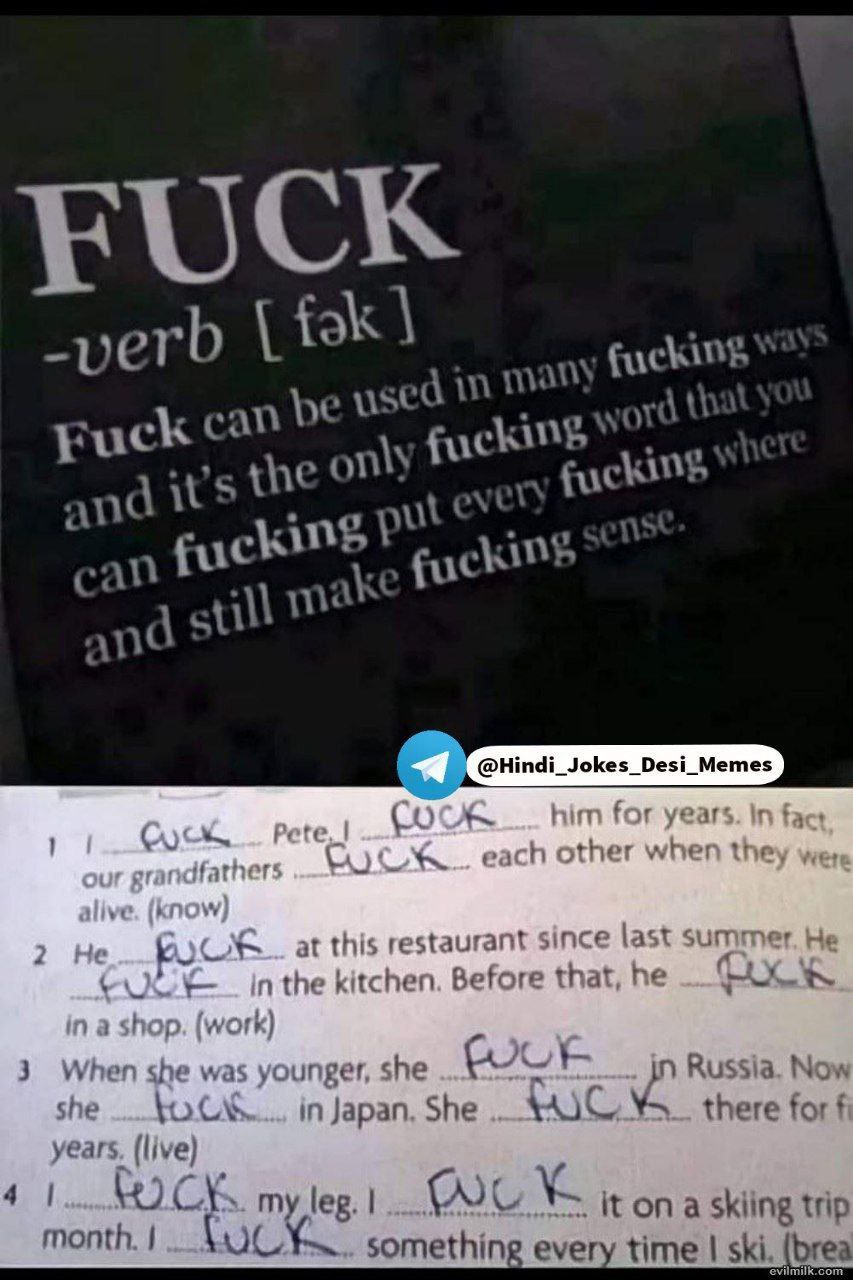 FUCK
-verb [ fək ]
Fuck can be used in many fucking ways
and it's the only fucking word that you
can fucking put every fucking where
and still make fucking sense.
@Hindi_Jokes_Desi_Memes
1 I FUCK Pete. I FUCK him for years. In fact,
our grandfathers FUCK each other when they were
alive. (know)
2 He FUCK at this restaurant since last summer. He
FUCK in the kitchen. Before that, he FUCK
in a shop. (work)
3 When she was younger, she FUCK in Russia. Now
she FUCK in Japan. She FUCK there for fi
years. (live)
4 I FUCK my leg. I FUCK it on a skiing trip
month. I FUCK something every time I ski. (brea
evilmilk.com